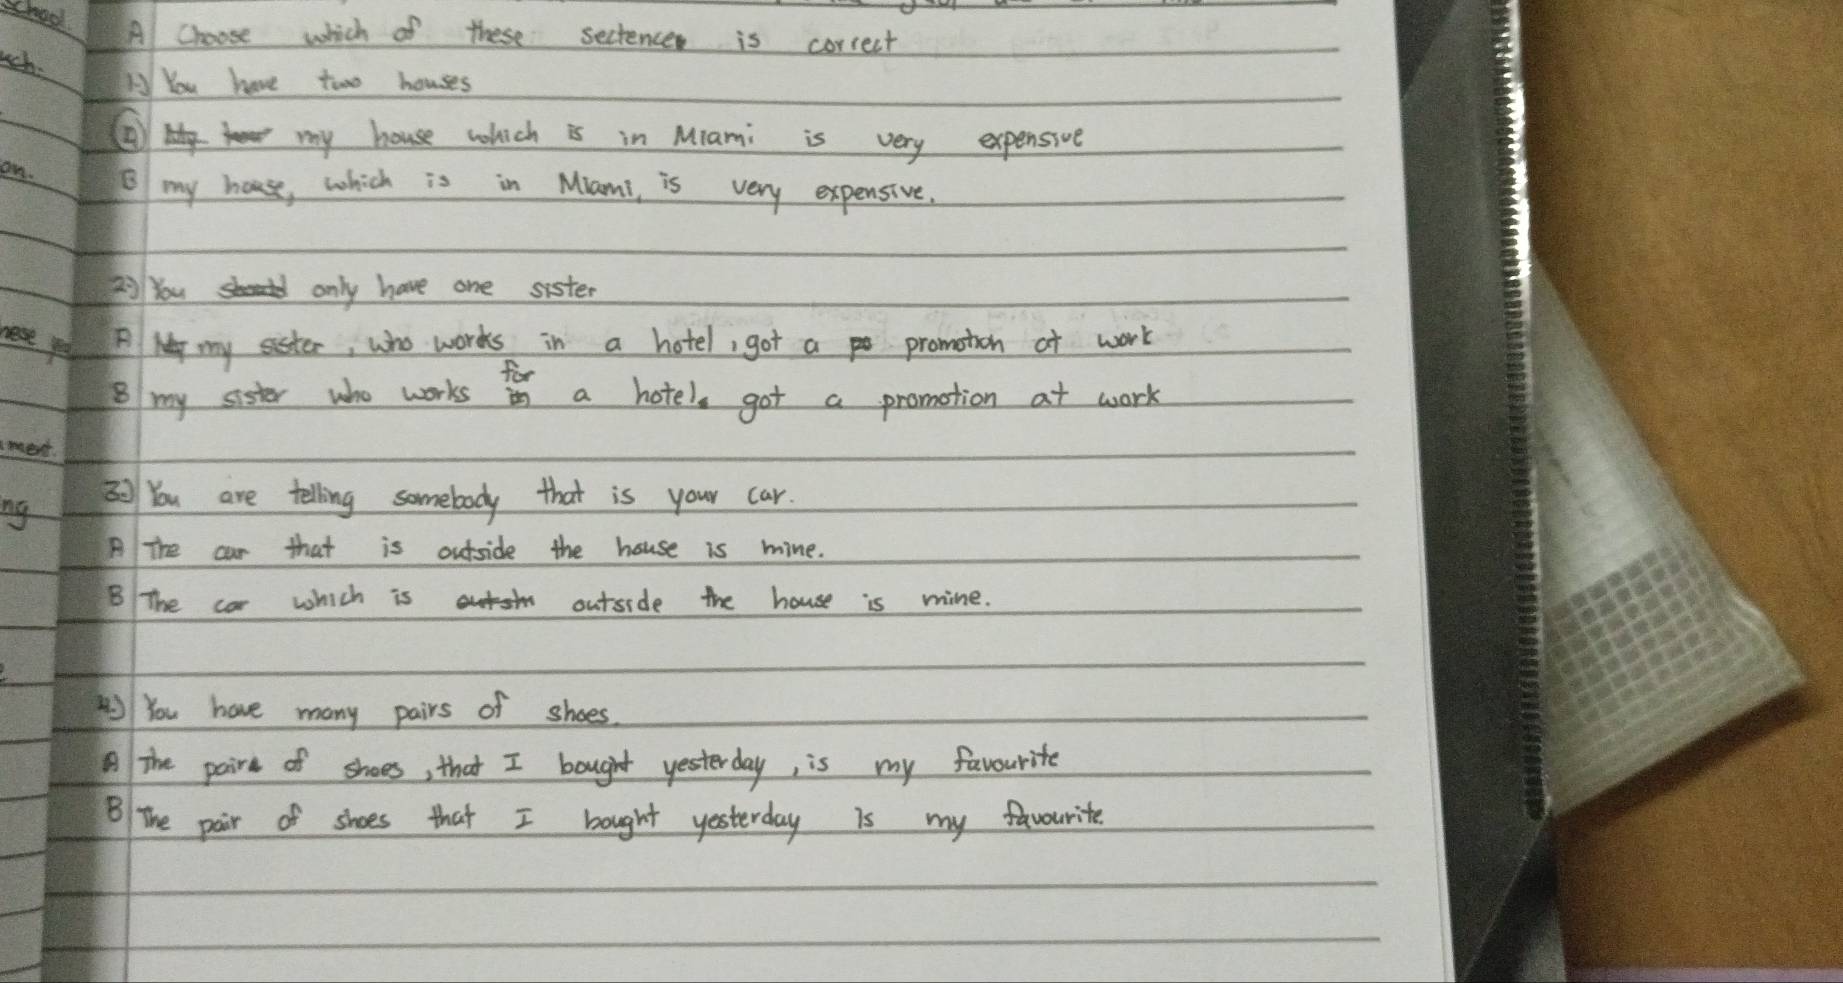 school
A Choose which of these sectences is correct
1.) You have two houses
A my house which is in Miami is very expensive
B my house, which is in Miami, is very expensive.
on.
2.) You only have one sister
A my sister, who works in a hotel, got a promotion at work
for
B my sister who works in a hotel. got a promotion at work
ment.
3.) You are telling somebody that is your car.
ng
A The car that is outside the house is mine.
B The car which is outside the house is mine.
4.) You have many pairs of shoes.
A The pair of shoes, that I bought yesterday, is my favourite
B The pair of shoes that I bought yesterday is my favourite.